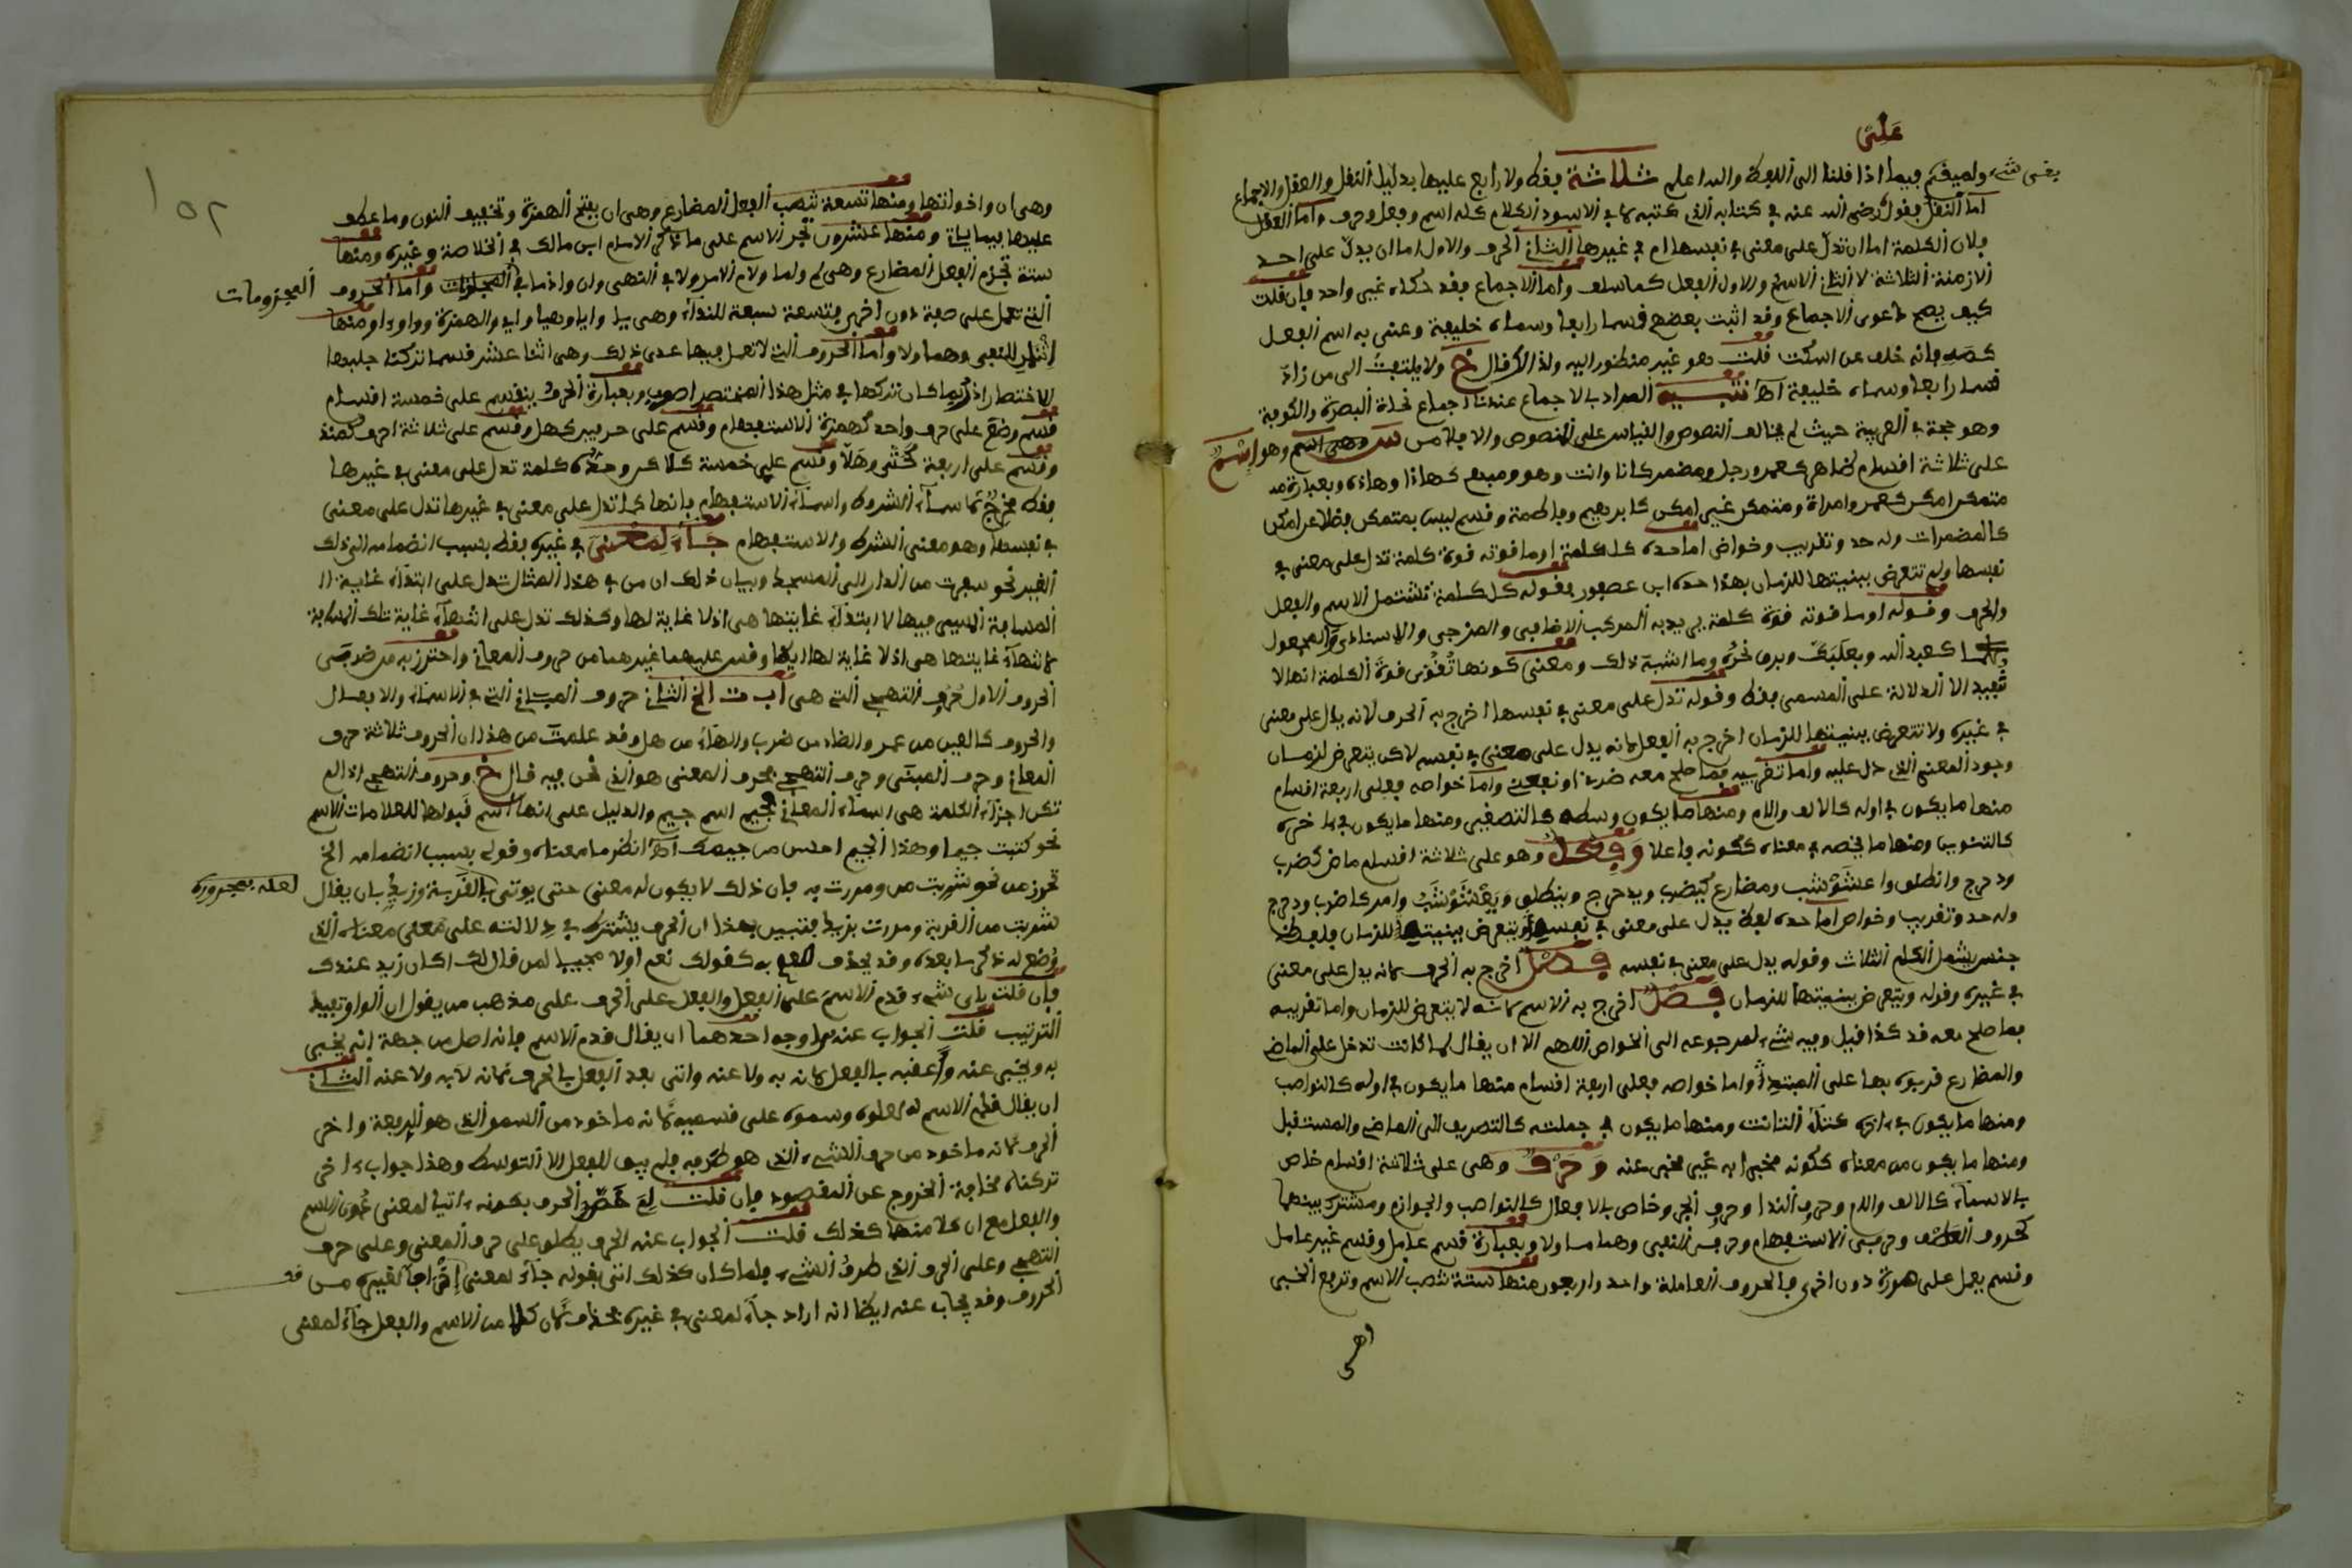 على
يغنى شيء ولم يبق فيما اذا قلنا الى اللفظ والله اعلم ثلاثة فقط ولا رابع عليها بدليل النقل والعقل والاجماع
اما النقل فقول رضي الله عنه في كتابه الذي كتبه لابي الاسود الكلام كله اسم وفعل وحرف واما العقل
فلان الكلمة اما ان تدل على معنى في نفسها ام في غيرها الثاني الحرف والاول اما ان يدل على احد
الازمنة الثلاثة لا الثاني الاسم والاول الفعل كما سلف واما الاجماع فقد حكاه غير واحد فان قلت
كيف يصح دعوى الاجماع وقد اثبت بعضهم قسما رابعا وسماه خليفة وعنى به اسم الفعل
كصه فانه خلف عن اسكت قلت هو غير منظور اليه ولذا قال خ ولا يلتفت الى من زاد
قسما رابعا وسماه خليفة اه تنبيه المراد بالاجماع عندنا اجماع نحاة البصرة والكوفة
وهو حجة في العربية حيث لم يخالف النصوص والقياس على النصوص والا فلا من وهو اسم
على ثلاثة اقسام ظاهر كعمر ورجل ومضمر كانا وانت وهو ومبهم كهاذا وهاذه وبعبارة
متمكن امكن كعمر وامراة ومتمكن غير امكن كابرهيم وفاطمة وقسم ليس بمتمكن فضلا عن امكن
كالمضمرات وله حد وتقريب وخواص اما حده كل كلمة او ما قوته قوة كلمة تدل على معنى في
نفسها ولم تتعرض ببنيتها للزمان بهذا حده ابن عصفور فقوله كل كلمة تشتمل الاسم والفعل
والحرف وقوله او ما قوته قوة كلمة يريد به المركب الاضافي والمزجي والاسنادي والمجعول
كعبد الله وبعلبك وبرق نحره وما اشبه ذلك ومعنى كونها تقوى قوة الكلمة انها لا
تفيد الا الدلالة على المسمى فقط وقوله تدل على معنى في نفسها اخرج به الحرف لانه يدل على معنى
في غيره ولا تتعرض ببنيتها للزمان اخرج به الفعل لانه يدل على معنى في نفسه لاكن يتعرض لزمان
وجود المعنى الذي دل عليه واما تقريبه فما صلح معه ضرني او نفعني واما خواصه فعلى اربعة اقسام
منها ما يكون في اوله كالالف واللام ومنها ما يكون وسطه كالتصغير ومنها ما يكون في اخره
كالتنوين ومنها ما يخصه في معناه ككونه فاعلا وفعل وهو على ثلاثة اقسام ماض كضرب
ودحرج وانطلق واعشوشب ومضارع كيضرب ويدحرج وينطلق ويعشوشب وامر كاضرب ودحرج
وله حد وتقريب وخواص اما حده لفظ يدل على معنى في نفسه ويتعرض ببنيته للزمان فلفظ
جنس يشمل الكلم الثلاث وقوله يدل على معنى في نفسه فصل اخرج به الحرف لانه يدل على معنى
في غيره وقوله ويتعرض ببنيتها للزمان فصل اخرج به الاسم لانه لا يتعرض للزمان واما تقريبه
فما صلح معه قد كذا قيل وفيه شيء لمرجوعه الى الخواص اللهم الا ان يقال لما كانت تدخل على الماضي
والمضارع قربوه بها على المبتدئ واما خواصه فعلى اربعة اقسام منها ما يكون في اوله كالنواصب
ومنها ما يكون في اخره كتاء التانيث ومنها ما يكون في جملته كالتصريف الى الماضي والمستقبل
ومنها ما يكون من معناه ككونه مخبرا به غير مخبر عنه وحرف وهي على ثلاثة اقسام خاص
بالاسماء كالالف واللام وحرف الندا وحرف الجر وخاص بالافعال كالنواصب والجوازم ومشترك بينهما
كحروف العطف وحرفي الاستفهام وحرفي النفي وهما ما ولا وبعبارة قسم عامل وقسم غير عامل
وقسم يعمل على صورة دون اخرى فالحروف العاملة واحد واربعون منها ستة تنصب الاسم وترفع الخبر
وهي
١٥٢
وهي ان واخواتها ومنها تسعة تنصب الفعل المضارع وهي ان بفتح الهمزة وتخفيف النون وما عطف
عليها فيما ياتي ومنها عشرون تجر الاسم على ما ذكر الامام ابن مالك في الخلاصة وغيره ومنها
ستة تجزم الفعل المضارع وهي لم ولما ولام الامر ولا في النهي وان واذما في واما الحروف
المجزومات
التي تعمل على صفة دون اخرى فتسعة سبعة للنداء وهي يا وايا وهيا واي والهمزة ووا واو ومنها
اثنان للنفي وهما ولا واما الحروف التي لا تعمل فيما عدى ذلك وهي اثنا عشر قسما تركنا جلبها
للاختصار اذ ربما كان تركها في مثل هذا المختصر اصوب وبعبارة الحرف ينقسم على خمسة اقسام
قسم وضع على حرف واحد كهمزة الاستفهام وقسم على حرفين كهل وقسم على ثلاثة احرف كمنذ
وقسم على اربعة كحتى وهلا وقسم على خمسة كلاكن وحده كلمة تدل على معنى في غيرها
فقط مخرج اسماء الشروط واسماء الاستفهام فانها كما تدل على معنى في غيرها تدل على معنى
في نفسها وهو معنى الشرط والاستفهام جاء لمعنى في غيره فقط بسبب انضمامه الى ذلك
الغير نحو سرت من الدار الى المسجد وبيان ذلك ان من في هذا المثال تدل على ابتداء غاية
المسافة السير فيها لا ابتداء غايتها هي اذ لا غاية لها وكذلك تدل على انتهاء غاية تلك المسافة
لا انتهاء غايتها هي اذ لا غاية لها ايضا وقس عليهما غيرهما من حروف المعاني واحترز به من ضربي
الحروف الاول حروف التهجي التي هي اب ت الخ الثاني حروف المباني التي في الاسماء والافعال
والحروف كالعين من عمر والضاد من ضرب والهاء من هل وقد علمت من هذا ان الحروف ثلاثة حرف
المعاني وحرف المبنى وحرف التهجي فحرف المعنى هو الذي نحن فيه قال خ وحروف التهجي اذا لم
تكن اجزاء الكلمة هي اسماء المعاني فجيم اسم جيم والدليل على انها اسم قبولها لعلامات الاسم
نحو كتبت جيما وهذا الجيم احسن من جيمك اه انظر ما معناه وقوله بسبب انضمامه الخ
تحرز من نحو شربت من ومررت به فان ذلك لا يكون له معنى حتى يوتى بالقرية وزيد بان يقال
لعله بمجروره
شربت من القرية ومررت بزيد فتبين بهذا ان الحرف يشترط في دلالته على معنى معناه الذي
وضع له ذكر ما بعده وقد يحذف به كقولك نعم او لا مجيبا لمن قال لك اكان زيد عندك
فان قلت باي شيء قدم الاسم على الفعل والفعل على الحرف على مذهب من يقول ان الواو تفيد
الترتيب قلت الجواب عنه من اوجه احدهما ان يقال قدم الاسم فانه اصل من جهة انه يخبر
به ويخبر عنه واعقبه بالفعل لانه به ولا عنه واتى بعد الفعل بالحرف لانه لا به ولا عنه الثاني
ان يقال قدم الاسم وسموه على قسميه لانه ماخوذ من السمو الذي هو الرفعة واخر
الحرف لانه ماخوذ من حرف الشيء الذي هو طرفه فلم يبق للفعل الا التوسط وهذا جواب اخر
تركناه مخافة الخروج عن المقصود فان قلت لم خص الحرف بكونه اتيا لمعنى دون الاسم
والفعل مع ان كلا منها كذلك قلت الجواب عنه الحرف يطلق على حرف المعنى وعلى حرف
التهجي وعلى الحرف الذي طرف الشيء فلما كان كذلك اتى بقوله جاء لمعنى لغيره من
الحروف وقد يجاب عنه ايضا انه اراد جاء لمعنى في غيره فحذف لان كلا من الاسم والفعل جاء لمعنى